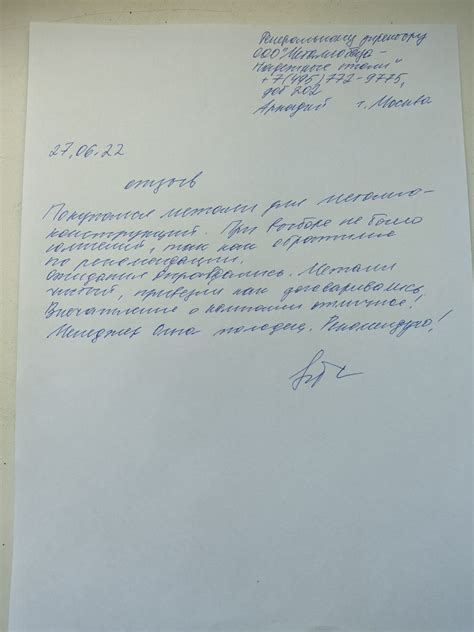 Генеральному директору
ООО "Металлобаза -
Надежные стали"
+7(495)772-9775,
доб 202
Аркадий г. Москва
27.06.22
отзыв
Покупался металл для металло-
конструкций. При выборе не было
сомнений, так как обратились
по рекомендации.
Ожидания оправдались. Металл
чистый, привезли как договаривались
Впечатление о компании отличное!
Менеджер Ольга молодец. Рекомендую!